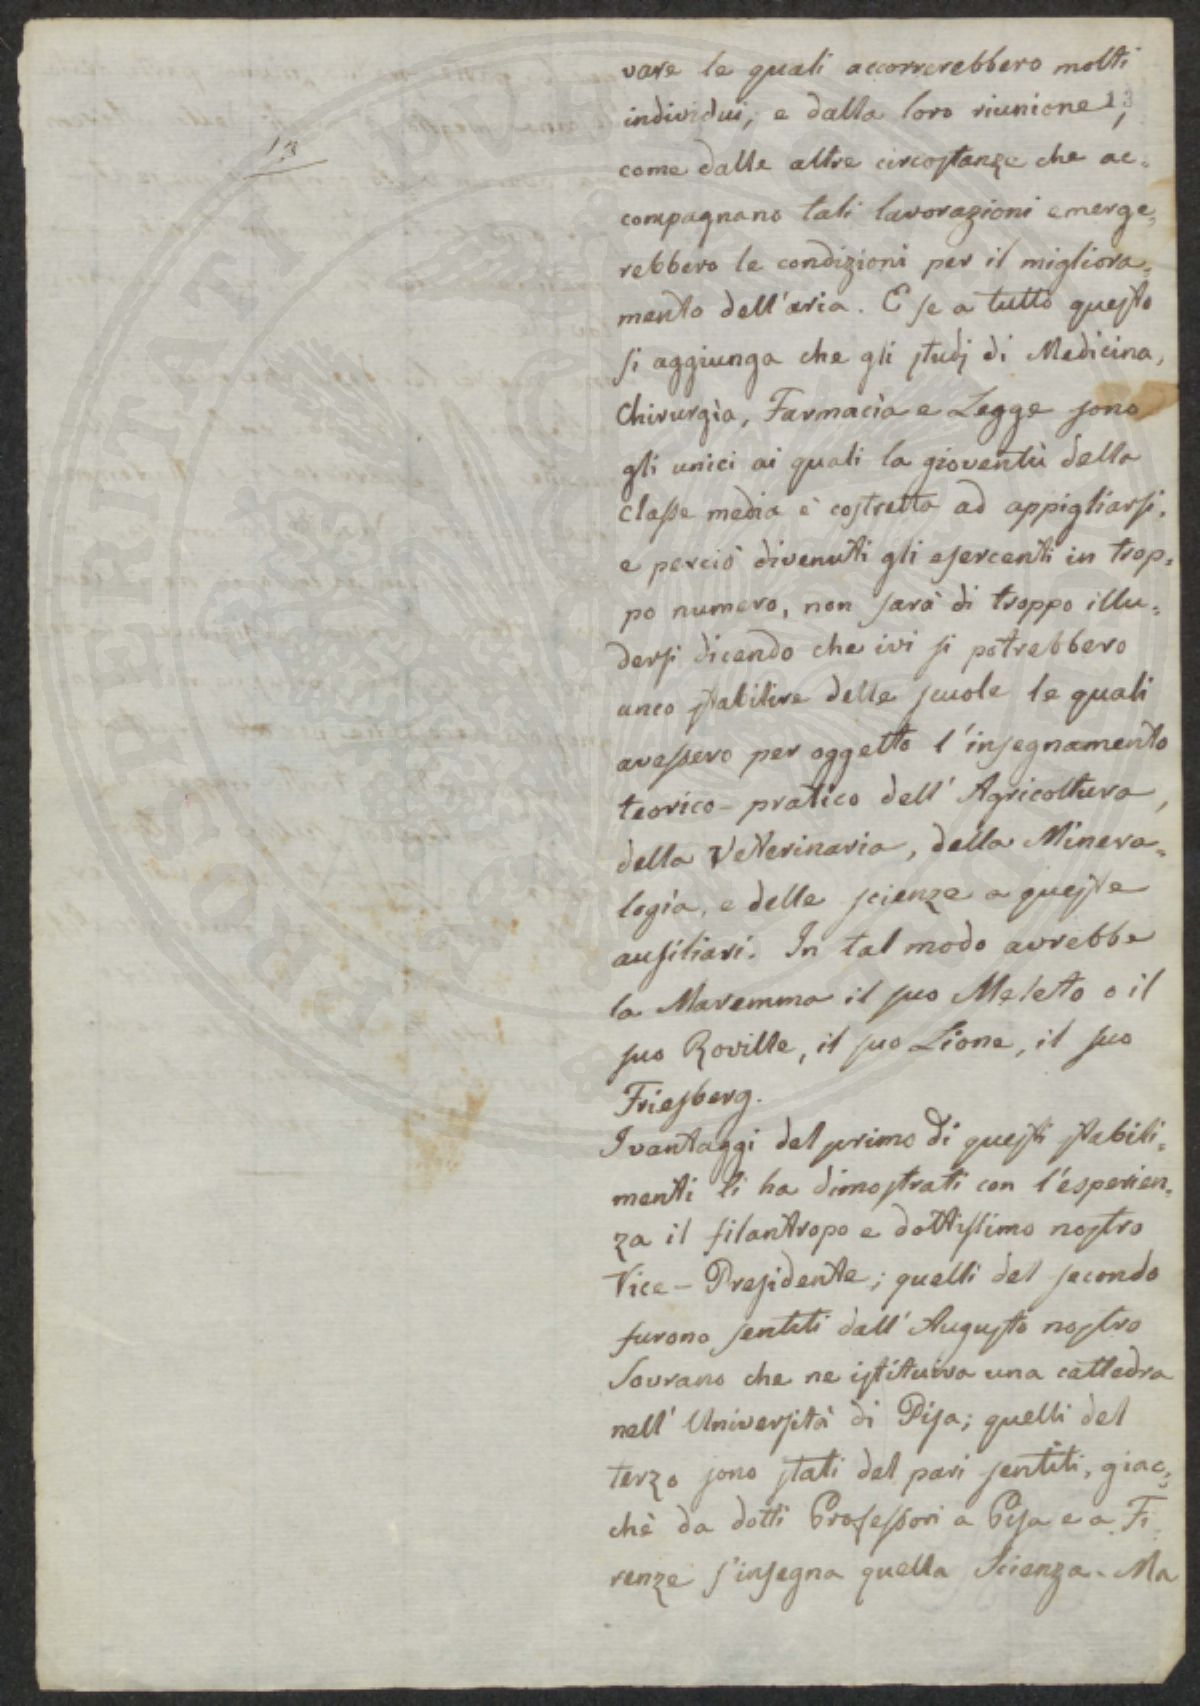 vare le quali accorrerebbero molti
individui, e dalla loro riunione,
13
13
come dalle altre circostanze che ac=
compagnano tali lavorazioni emerge=
rebbero le condizioni per il migliora=
mento dell'aria. E se a tutto questo
si aggiunga che gli studj di Medicina,
Chirurgìa, Farmacìa e Legge sono
gli unici ai quali la gioventù della
classe media è costretta ad appigliarsi,
e perciò divenuti gli esercenti in trop=
po numero, non sarà di troppo illu=
dersi dicendo che ivi si potrebbero
anco stabilire delle scuole le quali
avessero per oggetto l'insegnamento
teorico-pratico dell'Agricoltura,
della Veterinaria, della Minera=
logìa, e delle scienze a queste
ausiliari. In tal modo avrebbe
la Maremma il suo Meleto o il
suo Roville, il suo Lione, il suo
Friesberg.
I vantaggi del primo di questi stabili=
menti li ha dimostrati con l'esperien=
za il filantropo e dottissimo nostro
Vice-Presidente; quelli del secondo
furono sentiti dall'Augusto nostro
Sovrano che ne istituiva una cattedra
nell'Università di Pisa; quelli del
terzo sono stati del pari sentiti, giac=
chè da dotti Professori a Pisa e a Fi=
renze s'insegna quella Scienza. Ma